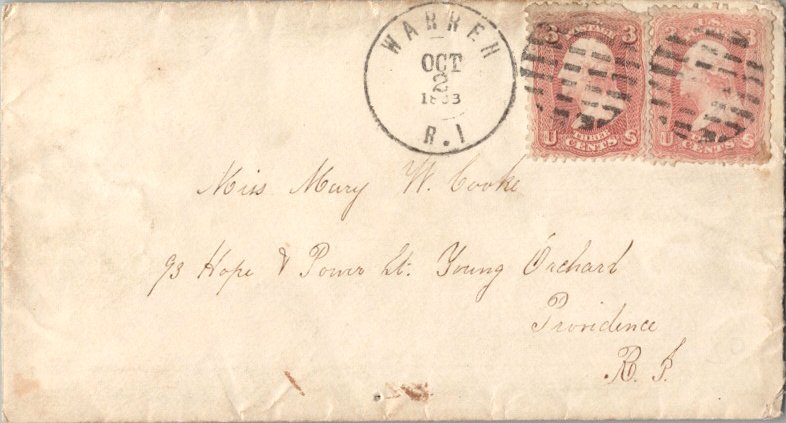 WARREN
OCT
2
1863
R.I
3 3
U THREE CENTS S
U.S. 3
U CENTS S
Miss Mary W. Cooke
93 Hope & Power St. Young Orchard
Providence
R. I.